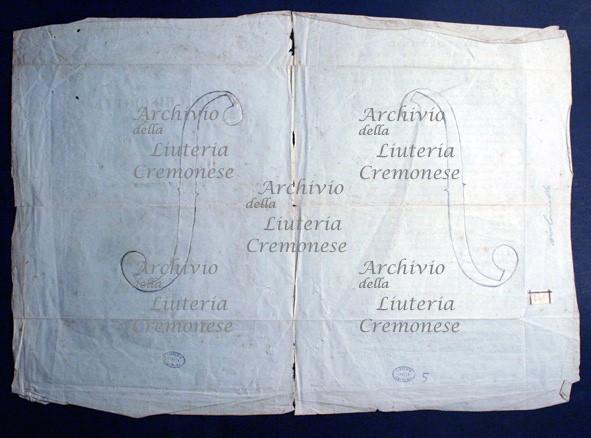 Archivio
della
Liuteria
Cremonese
Archivio
della
Liuteria
Cremonese
Archivio
della
Liuteria
Cremonese
Archivio
della
Liuteria
Cremonese
Archivio
della
Liuteria
Cremonese
5